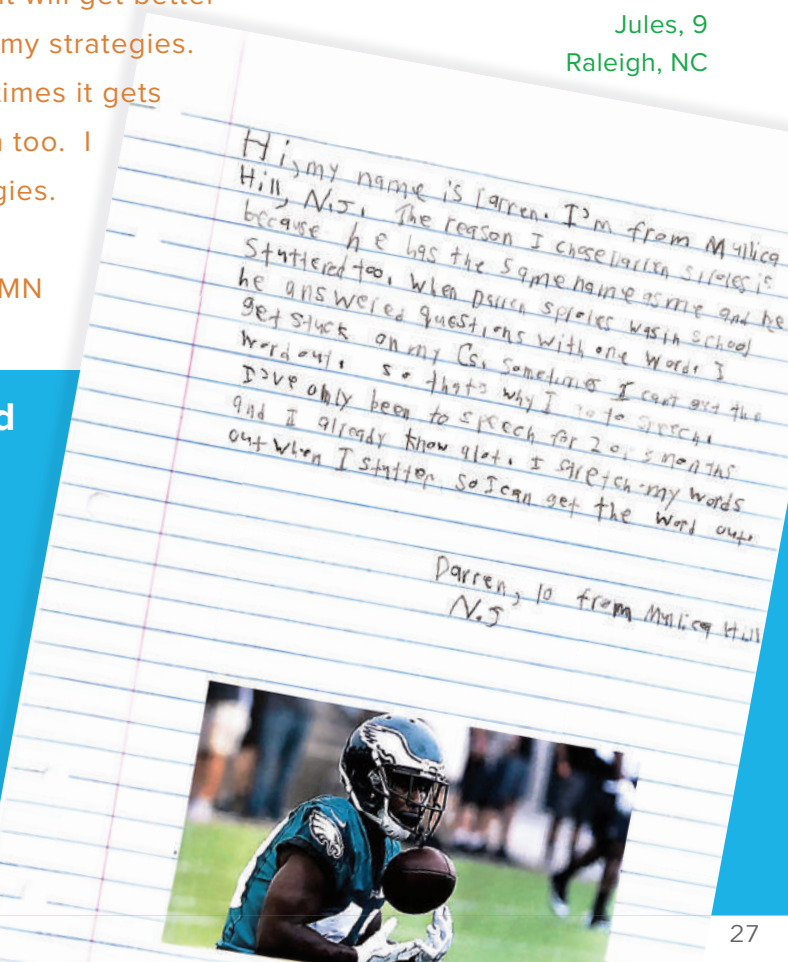 it will get better
my strategies.
times it gets
too. I
gies.
MN
d
Jules, 9
Raleigh, NC
Hi, my name is Darren. I'm from Mullica
Hill, N.J. The reason I chose Darren sproles is
because he has the same name as me and he
Stuttered too. When Darren sproles was in school
he answered questions with one word. I
get stuck on my Cs. Sometimes I cant get the
word out. so thats why I go to speech.
I've only been to speech for 2 or 3 months
and I already know alot. I stretch my words
out when I stutter so I can get the word out.
Darren, 10 from Mullica Hill
N.J
27